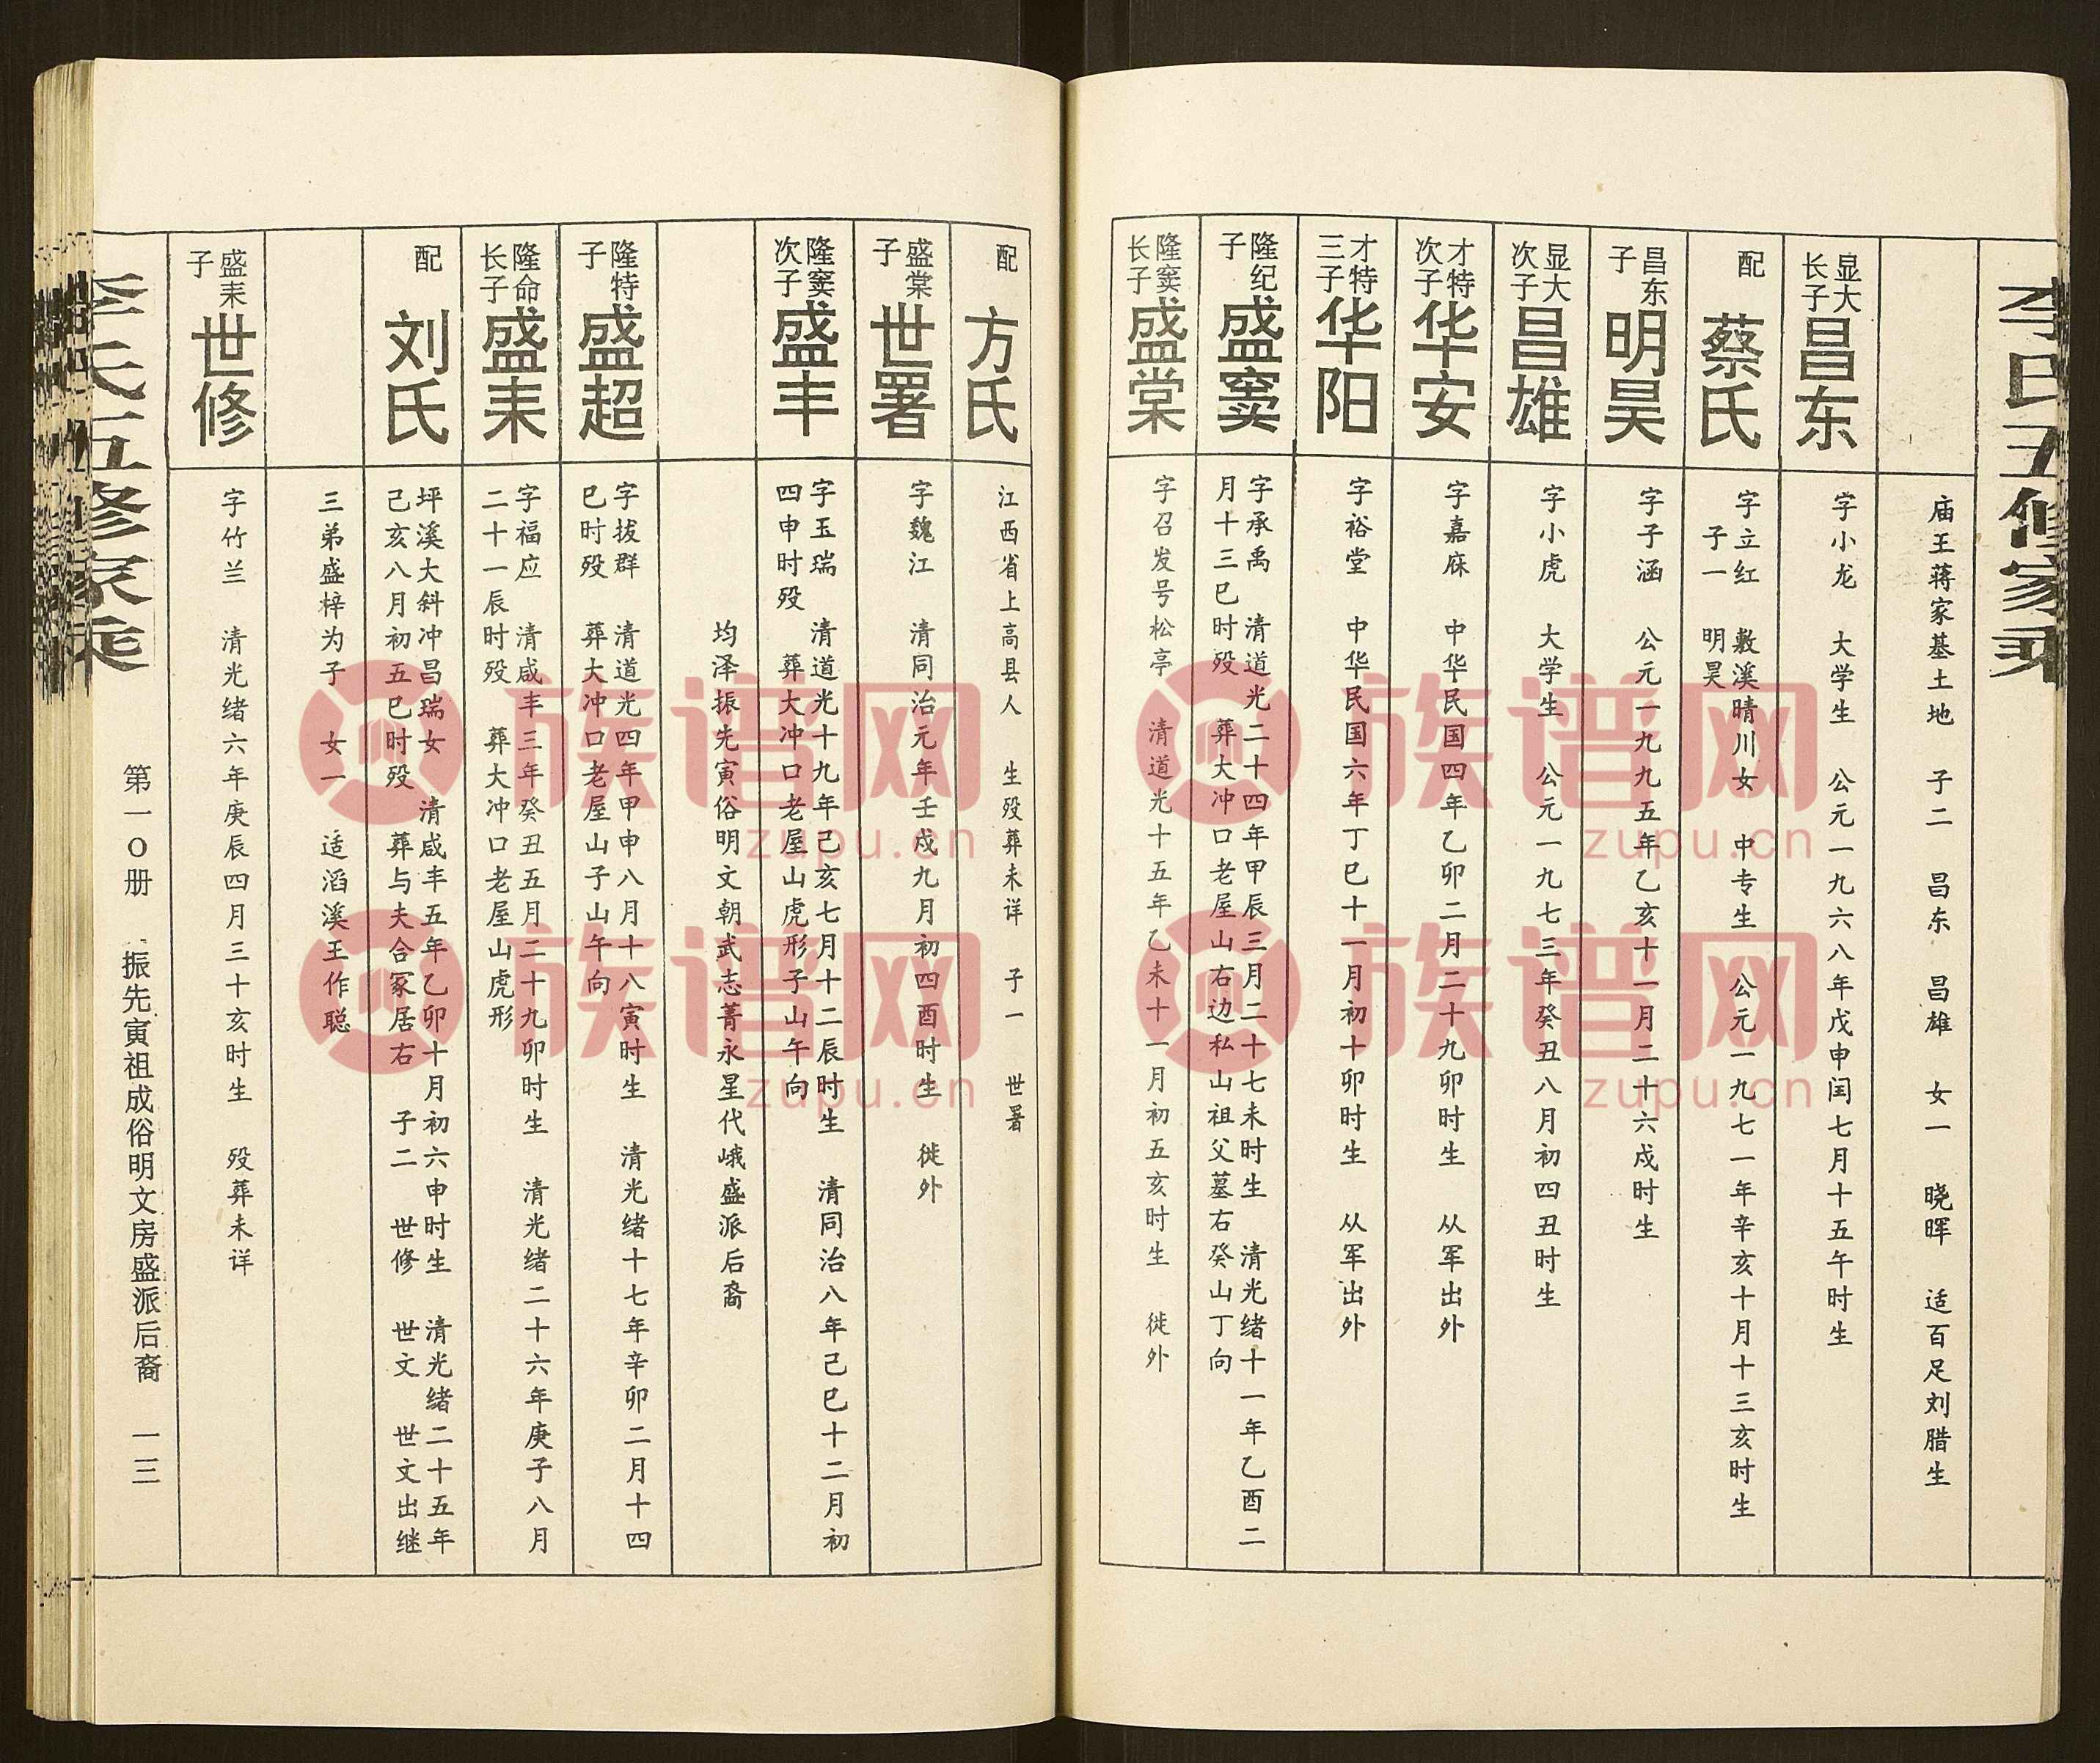 李氏五修家乘
庙王蒋家基土地 子二 昌东 昌雄 女一 晓晖 适百足刘腊生
显大长子
昌东
字小龙 大学生 公元一九六八年戊申闰七月十五午时生
配
蔡氏
字立红 敷溪晴川女 中专生 公元一九七一年辛亥十月十三亥时生
子一 明昊
昌东子
明昊
字子涵 公元一九九五年乙亥十一月二十六戌时生
显大次子
昌雄
字小虎 大学生 公元一九七三年癸丑八月初四丑时生
才特次子
华安
字嘉庥 中华民国四年乙卯二月二十九卯时生 从军出外
才特三子
华阳
字裕堂 中华民国六年丁巳十一月初十卯时生 从军出外
隆纪子
盛窦
字承禹 清道光二十四年甲辰三月二十七未时生 清光绪十一年乙酉二
月十三巳时殁 葬大冲口老屋山右边私山祖父墓右癸山丁向
隆窦长子
盛棠
字召发号松亭 清道光十五年乙未十一月初五亥时生 徙外
配
方氏
江西省上高县人 生殁葬未详 子一 世署
盛棠子
世署
字魏江 清同治元年壬戌九月初四酉时生 徙外
隆窦次子
盛丰
字玉瑞 清道光十九年己亥七月十二辰时生 清同治八年己巳十二月初
四申时殁 葬大冲口老屋山虎形子山午向
均泽振先寅俗明文朝武志菁永星代峨盛派后裔
隆特子
盛超
字拔群 清道光四年甲申八月十八寅时生 清光绪十七年辛卯二月十四
巳时殁 葬大冲口老屋山子山午向
隆命长子
盛耒
字福应 清咸丰三年癸丑五月二十九卯时生 清光绪二十六年庚子八月
二十一辰时殁 葬大冲口老屋山虎形
配
刘氏
坪溪大斜冲昌瑞女 清咸丰五年乙卯十月初六申时生 清光绪二十五年
己亥八月初五巳时殁 葬与夫合冢居右 子二 世修 世文 世文出继
三弟盛梓为子 女一 适滔溪王作聪
盛耒子
世修
字竹兰 清光绪六年庚辰四月三十亥时生 殁葬未详
李氏五修家乘
第一0册 振先寅祖成俗明文房盛派后裔 一三
族谱网
zupu.cn
族谱网
zupu.cn
族谱网
zupu.cn
族谱网
zupu.cn